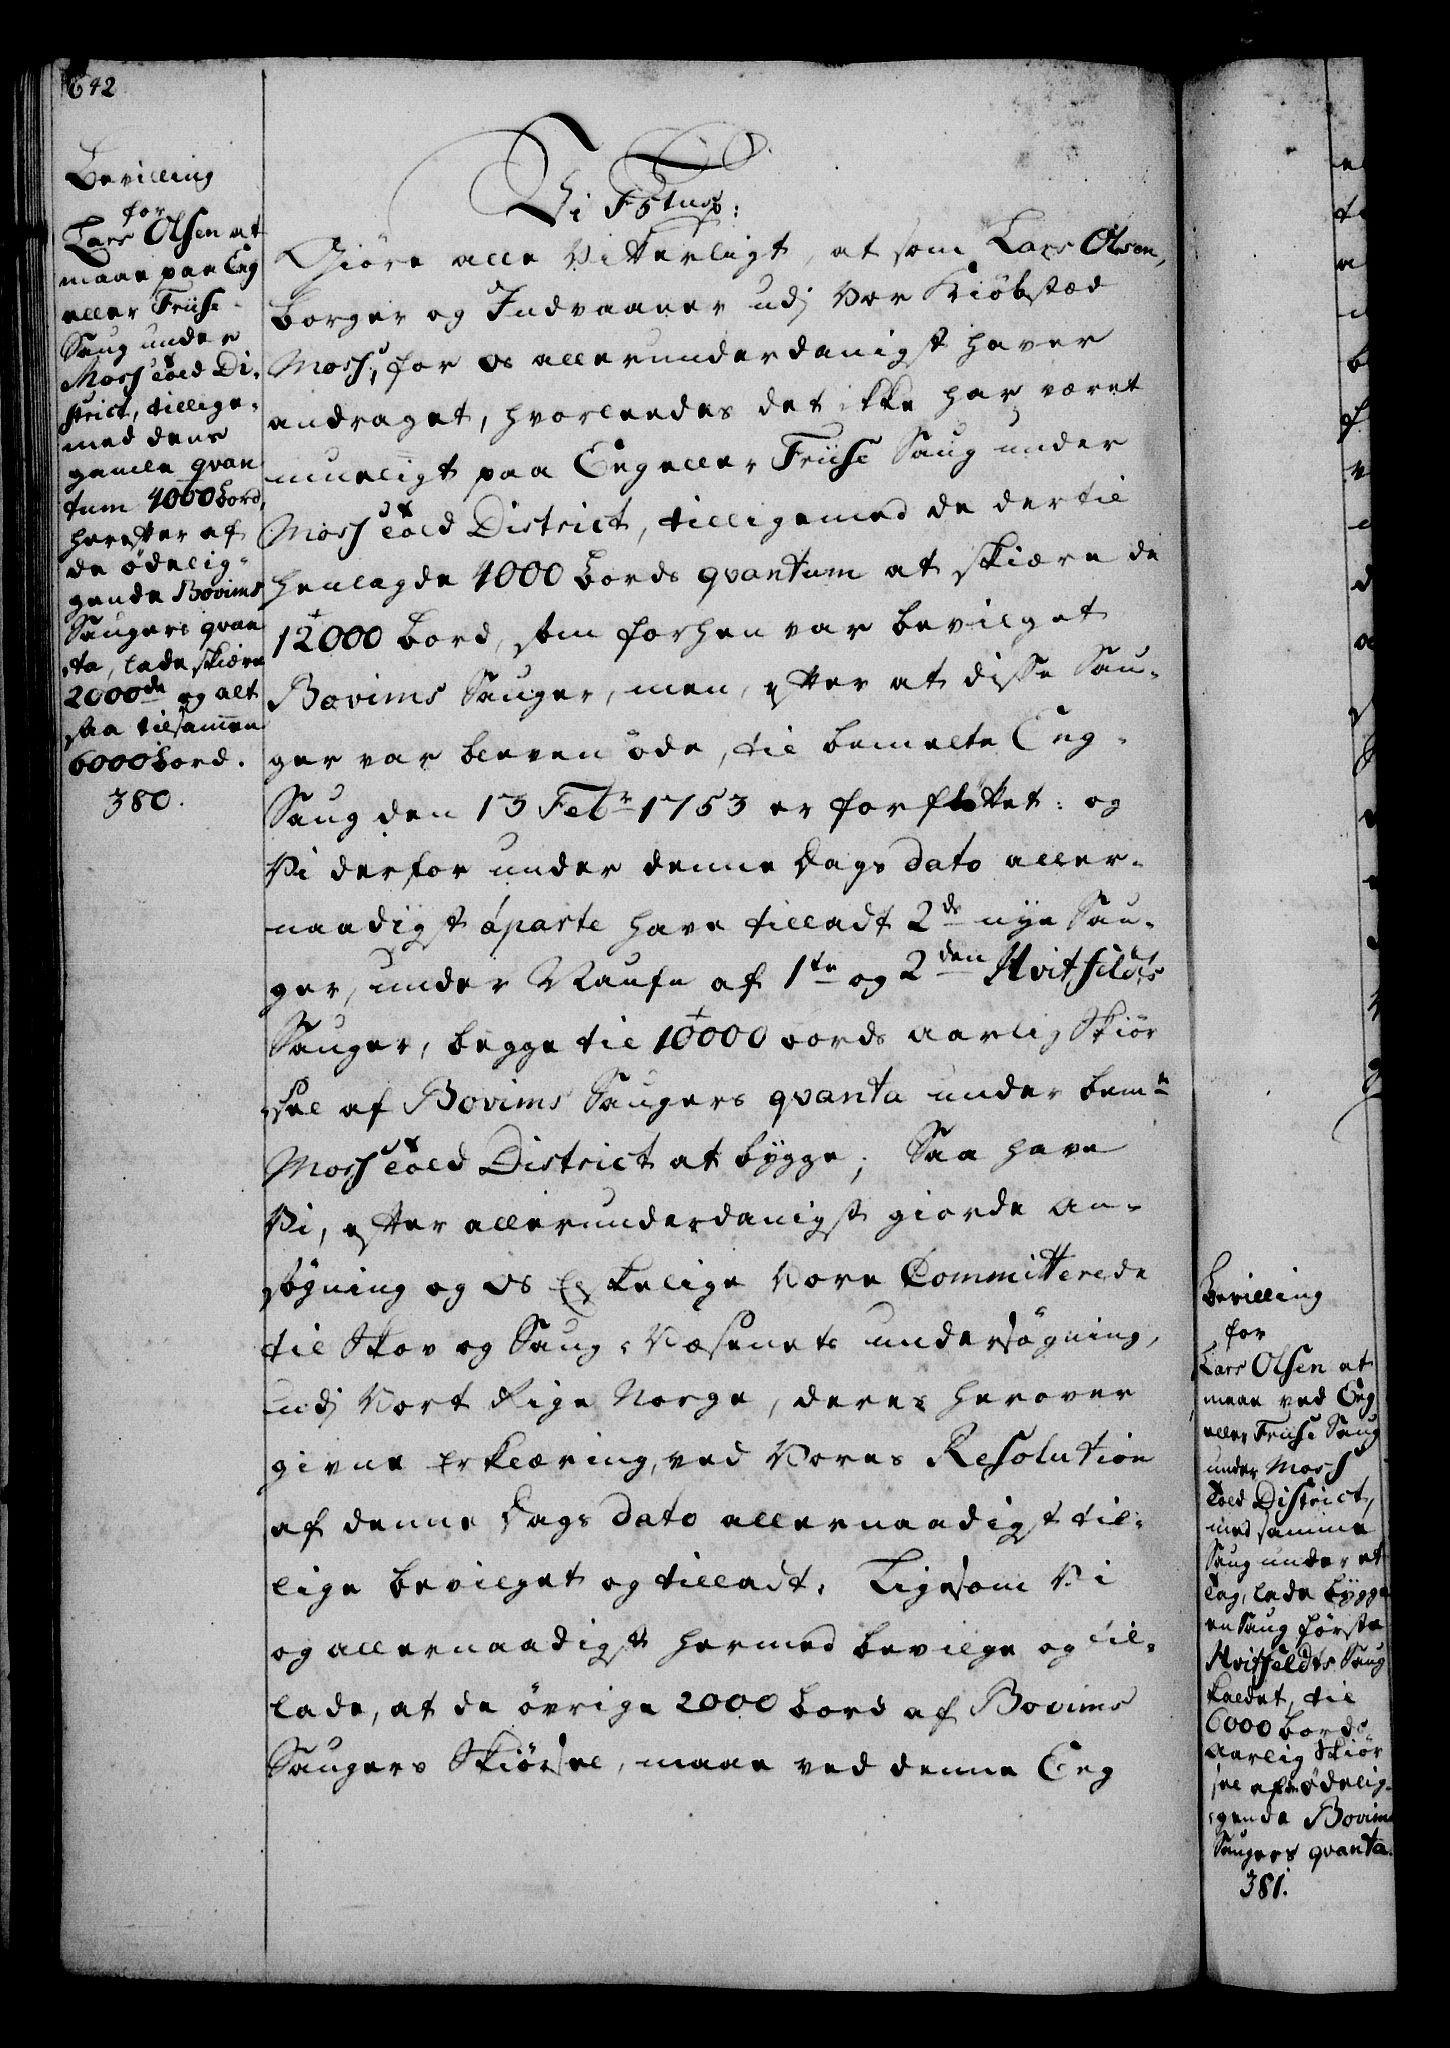 642
Bevilling
for
Lars Olsen at
maae paa Eeg
eller Friise
Saug under
Moss Told Di-
strict, tillige-
med dens
gamle qvan
tum 4000 bord,
herefter af
de ødelig-
gende Bovims
Saugers qvan
ta, lade skiære
2000de og alt
saa tilsam̄en
6000 bord.
380.
Vi F5tus:
Giøre alle Vitterligt, at som Lars Olsen,
Borger og Indvaaner udj Vor Kiøbstæd
Moss, for os allerunderdanigst haver
andraget, hvorleedes det ikke har været
mueligt paa Eeg eller Friise Saug under
Moss Told District, tilligemed de dertil
henlagde 4000 bords qvantum at skiære de
12000 bord, som forhen var bevilget
Bovims Sauger, men, efter at disse Sau-
ger var bleven øde, til bemelte Eeg-
Saug den 13 Febr 1753 er forfløttet: og
Vi derfor under denne Dags dato aller-
naadigst áparte have tilladt 2de nye Sau-
ger, under Naufn af 1te og 2den Hvitfeldts
Sauger, begge til 10000 bords aarlig Skiør
sel af Bovims Saugers qvanta under bemte
Moss Told District at bygge; Saa have
Vi, efter allerunderdanigst giorde An-
søgning og os Elskelige Vore Committerede
til Skov og Saug-Væsenets undersøgning,
udj Vort Rige Norge, deres herover
givne Erklæring, ved Vores Resolution
af denne Dags dato allernaadigst til-
lige bevilget og tilladt, Ligesom Vi
og allernaadigst hermed bevilge og til-
lade, at de øvrige 2000 bord af Bovims
Saugers Skiørsel, maae ved denne Eeg
Bevilling
for
Lars Olsen at
maae ved Eeg
eller Friise Saug
under Moss
Told District,
med samme
Saug under et
Tag, lade bygge
en Saug første
Hvitfeldts Saug
kaldet, til
6000 bords
aarlig Skiør
sel af de ødelig-
gende Bovims
Saugers qvanta.
381.